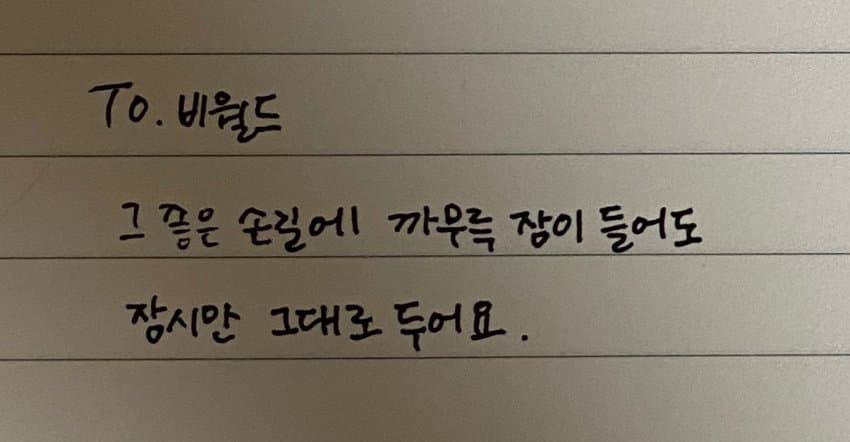 To. 비월드
그 쯤은 손길에 까무룩 잠이 들어도
잠시만 그대로 두어요.